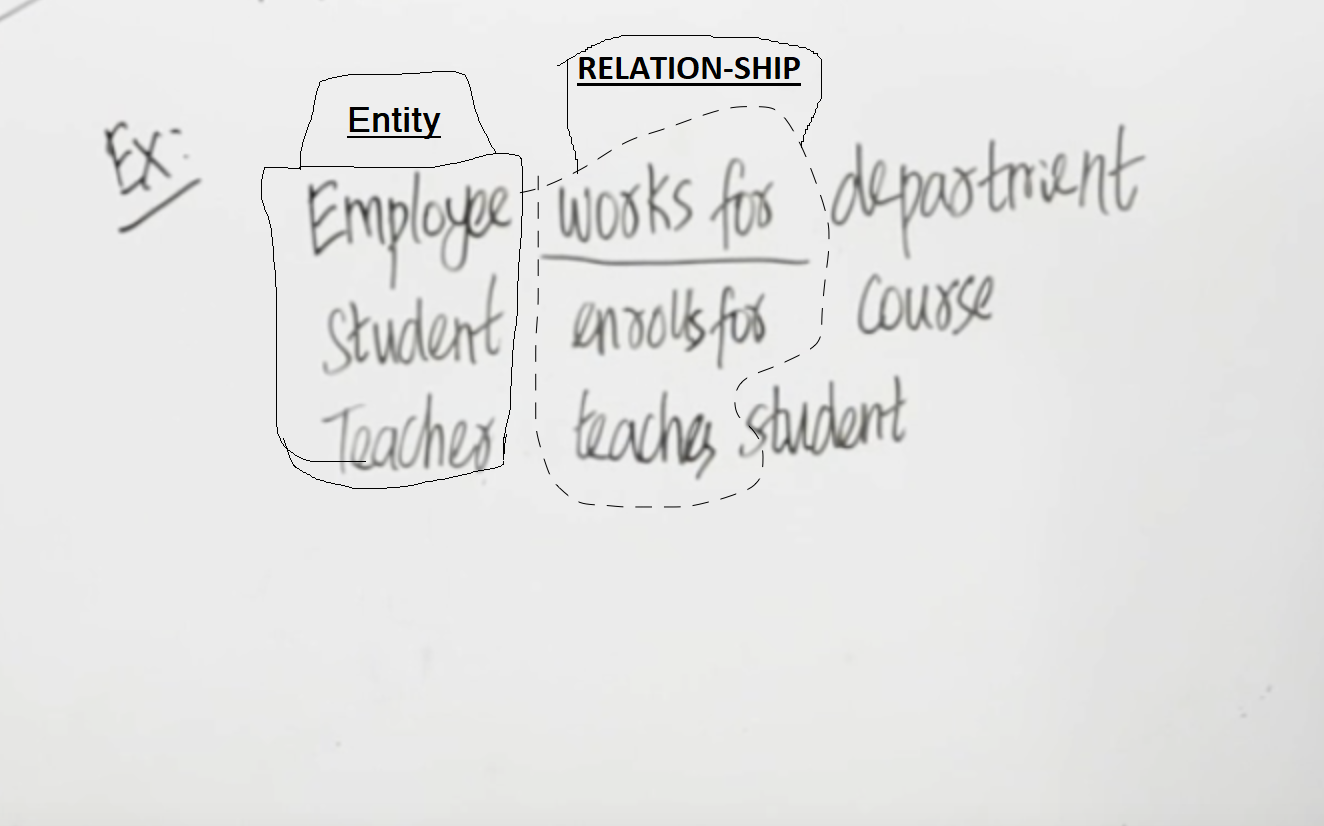 RELATION-SHIP
Entity
Ex:
Employee works for department
Student enrolls for course
Teacher teaches student